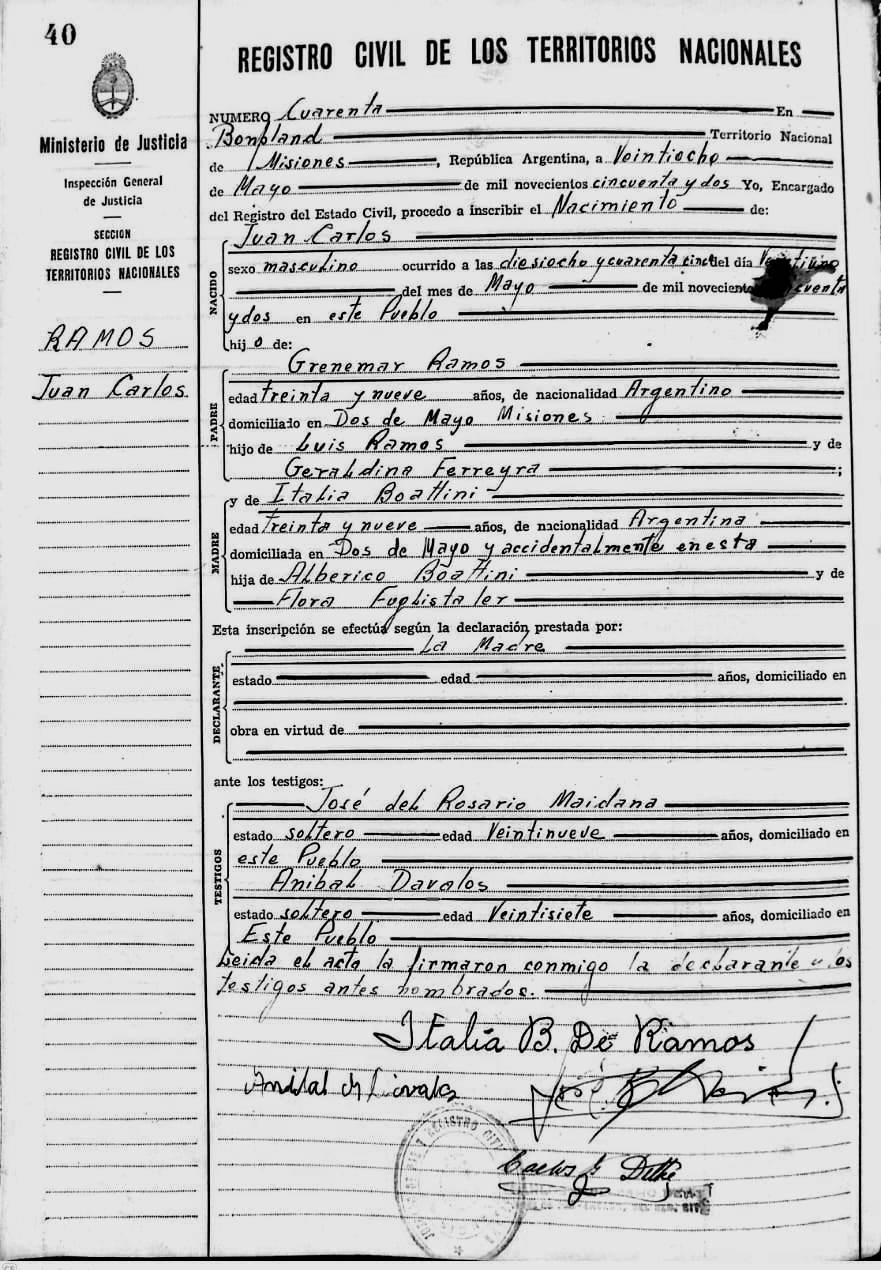 40
Ministerio de Justicia
Inspección General
de Justicia
SECCION
REGISTRO CIVIL DE LOS
TERRITORIOS NACIONALES
RAMOS
Juan Carlos
REGISTRO CIVIL DE LOS TERRITORIOS NACIONALES
NUMERO Cuarenta En
Bonpland Territorio Nacional
de Misiones, República Argentina, a Veintiocho
de Mayo de mil novecientos cincuenta y dos Yo, Encargado
del Registro del Estado Civil, procedo a inscribir el Nacimiento de:
NACIDO
Juan Carlos
sexo masculino ocurrido a las diesiocho y cuarenta cinc del día
del mes de Mayo de mil novecientos
y dos en este Pueblo
hijo de:
PADRE
Grenemar Ramos
edad treinta y nueve años, de nacionalidad Argentino
domiciliado en Dos de Mayo Misiones
hijo de Luis Ramos y de
Geraldina Ferreyra;
MADRE
y de Italia Boattini
edad treinta y nueve años, de nacionalidad Argentina
domiciliada en Dos de Mayo y accidentalmente en esta
hija de Alberico Boattini y de
Flora Fuglistaler
Esta inscripción se efectúa según la declaración prestada por:
DECLARANTE
La Madre
estado edad años, domiciliado en
obra en virtud de
ante los testigos:
TESTIGOS
José del Rosario Maidana
estado soltero edad Veintinueve años, domiciliado en
este Pueblo
Anibal Davalos
estado soltero edad Veintisiete años, domiciliado en
Este Pueblo
Leida el acta la firmaron conmigo la declarante y los
testigos antes nombrados.
Italia B. De Ramos